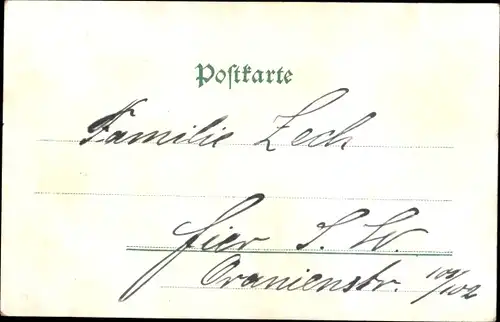 Postkarte
Familie Zech
hier S. W.
Oranienstr. 101/102